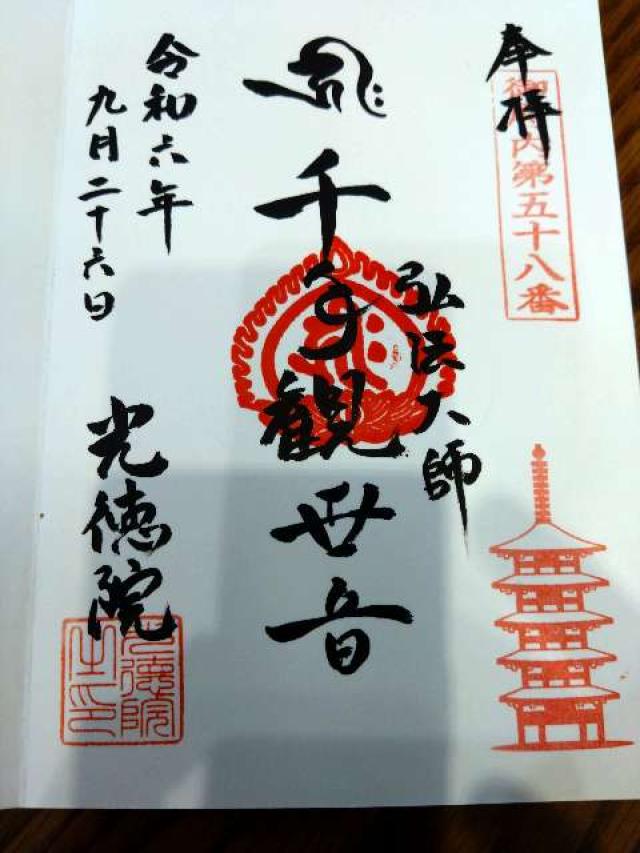 奉拝
御府内第五十八番
弘法大師
千手観世音
令和六年
九月二十六日
光徳院
光徳院之印